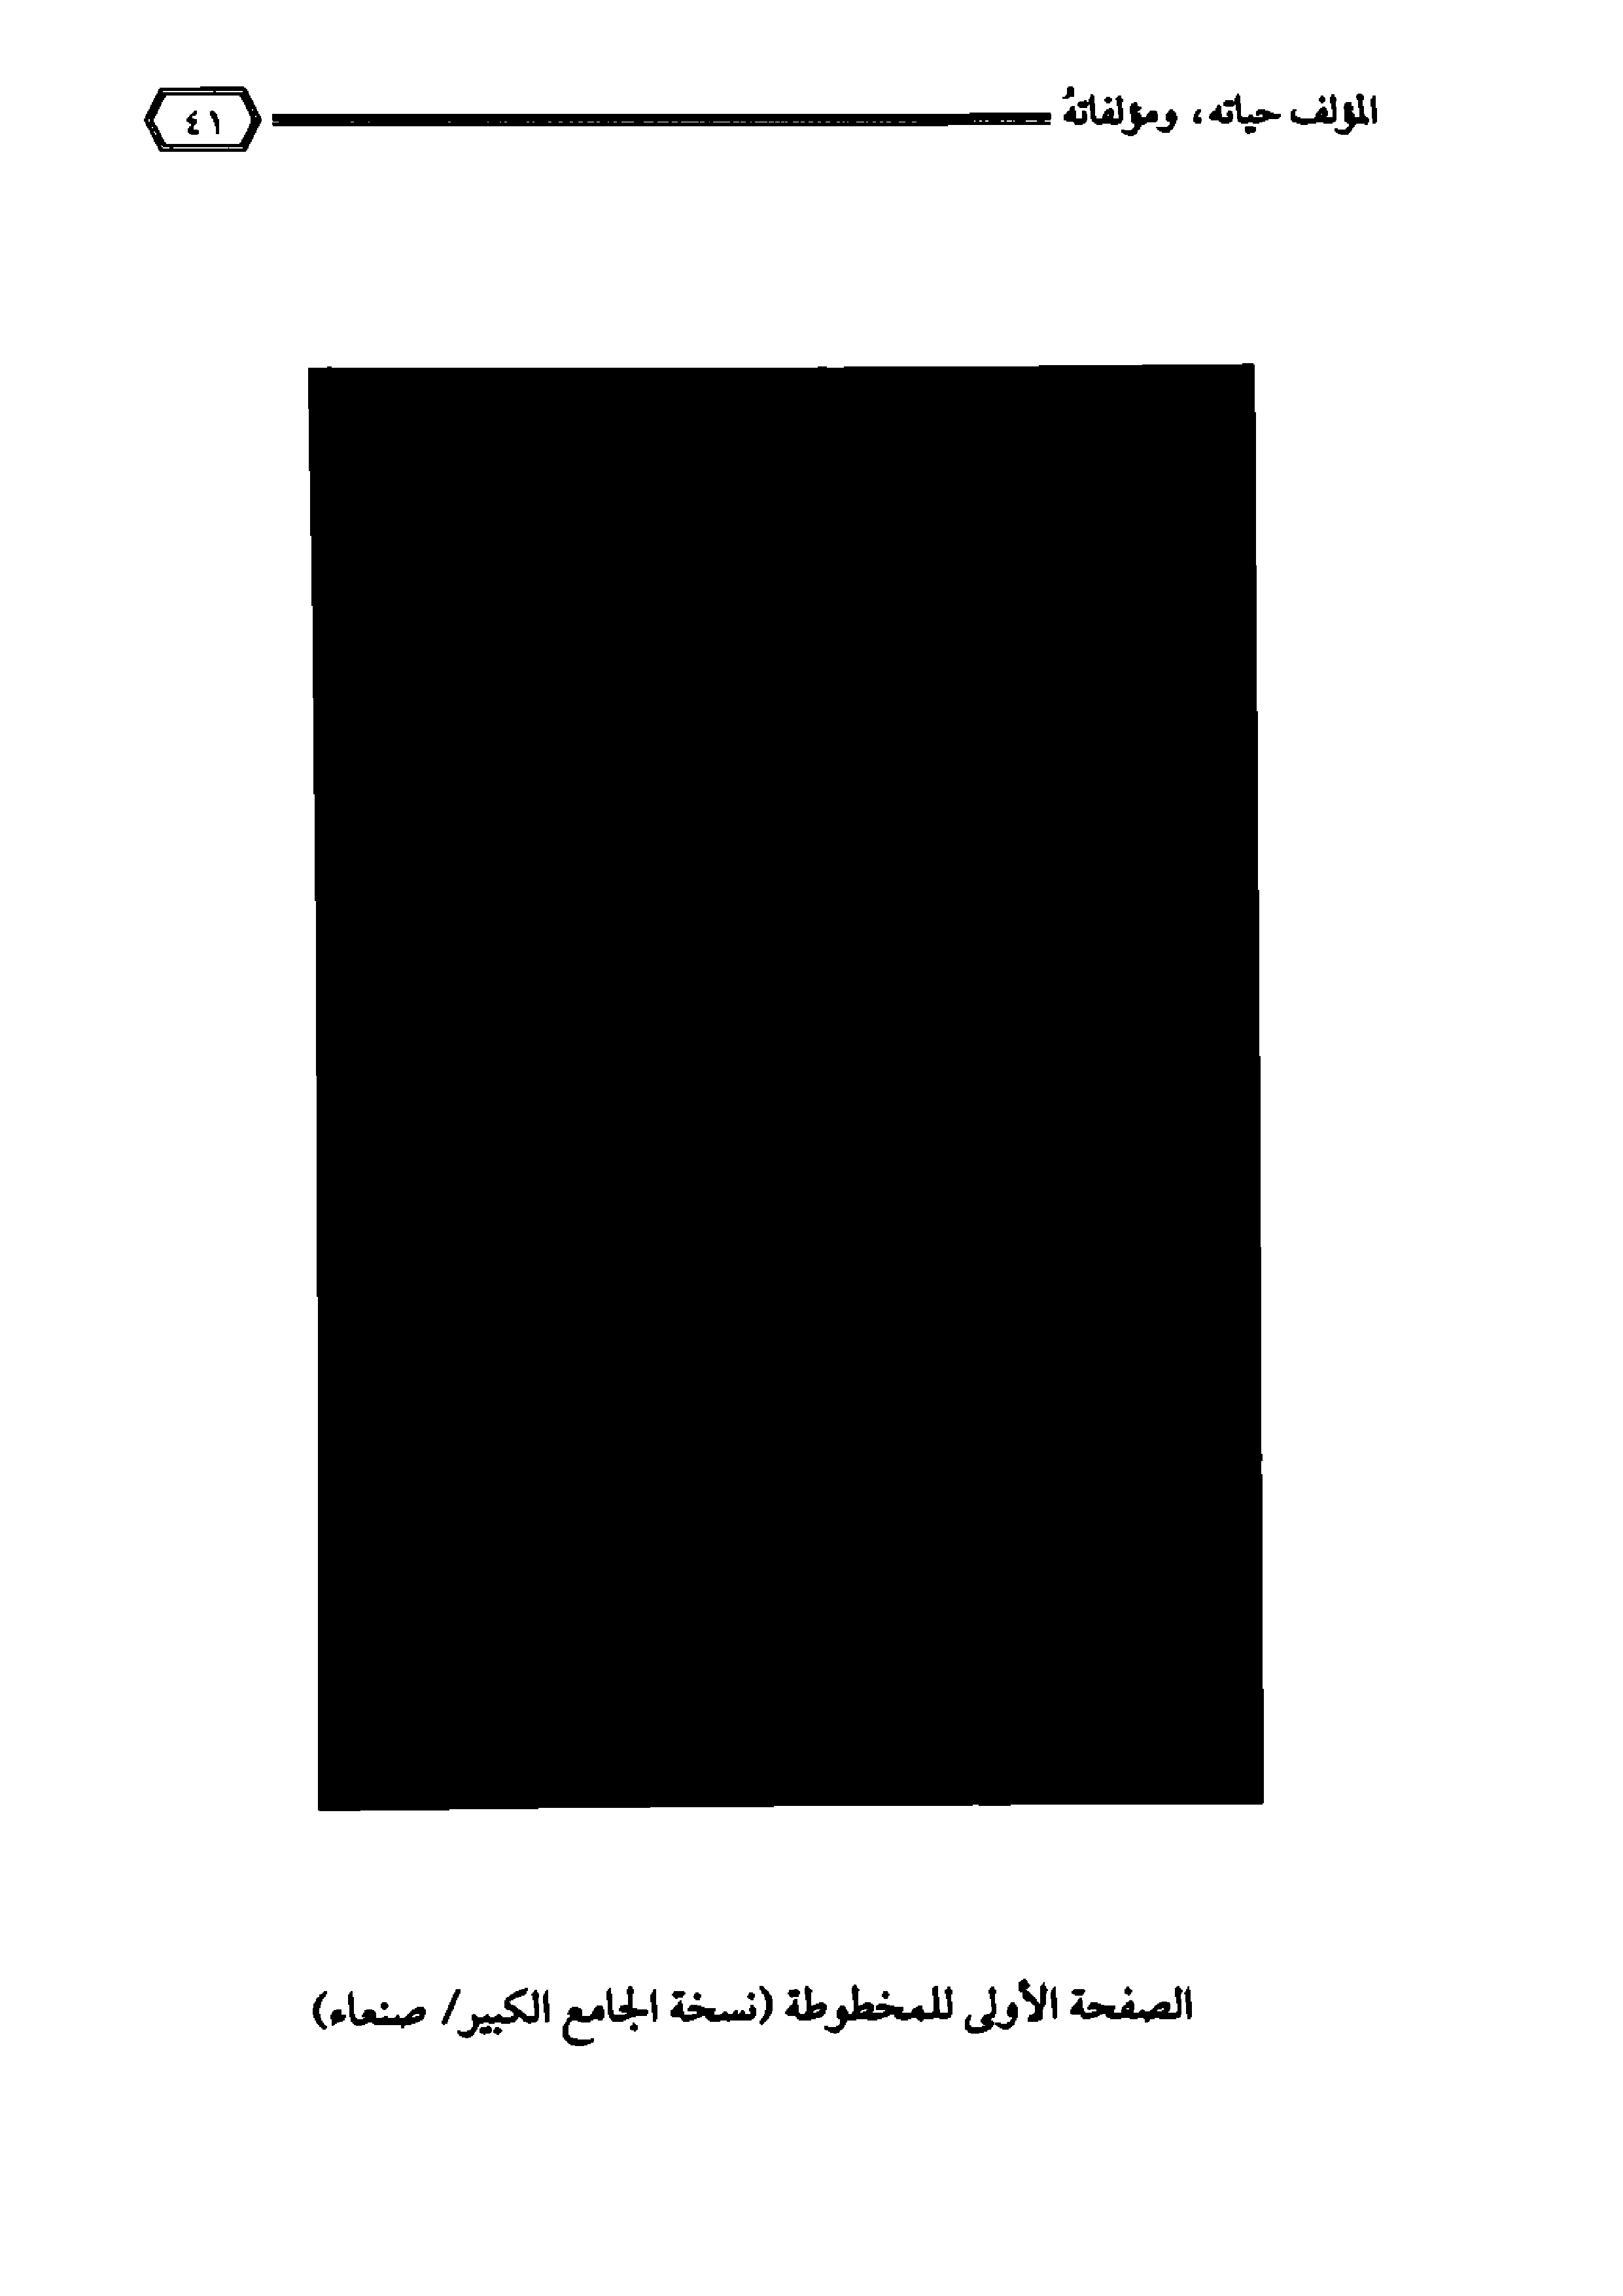 المؤلف حياته، ومؤلفاتهُ ٤١
الصفحة الأولى للمخطوطة (نسخة الجامع الكبير/ صنعاء)